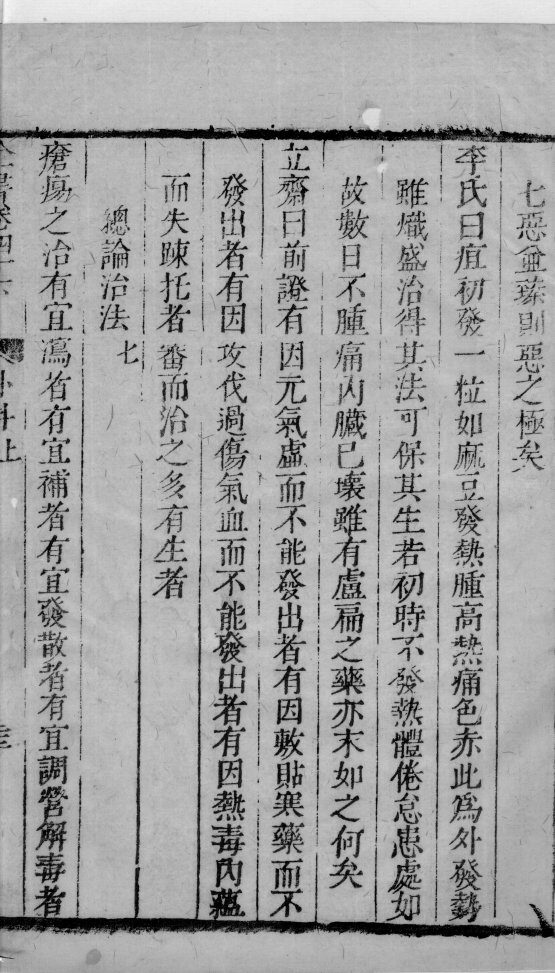 七惡並臻則惡之極矣
李氏曰疽初發一粒如麻豆發熱腫高熱痛色赤此為外發勢
雖熾盛治得其法可保其生若初時不發熱體倦怠患處如
故數日不腫痛內臟已壞雖有盧扁之藥亦末如之何矣
立齋曰前證有因元氣虛而不能發出者有因敷貼寒藥而不
發出者有因攻伐過傷氣血而不能發出者有因熱毒內蘊
而失踈托者審而治之多有生者
總論治法 七
瘡瘍之治有宜瀉者有宜補者有宜發散者有宜調營解毒者
全書卷四十六 外科上